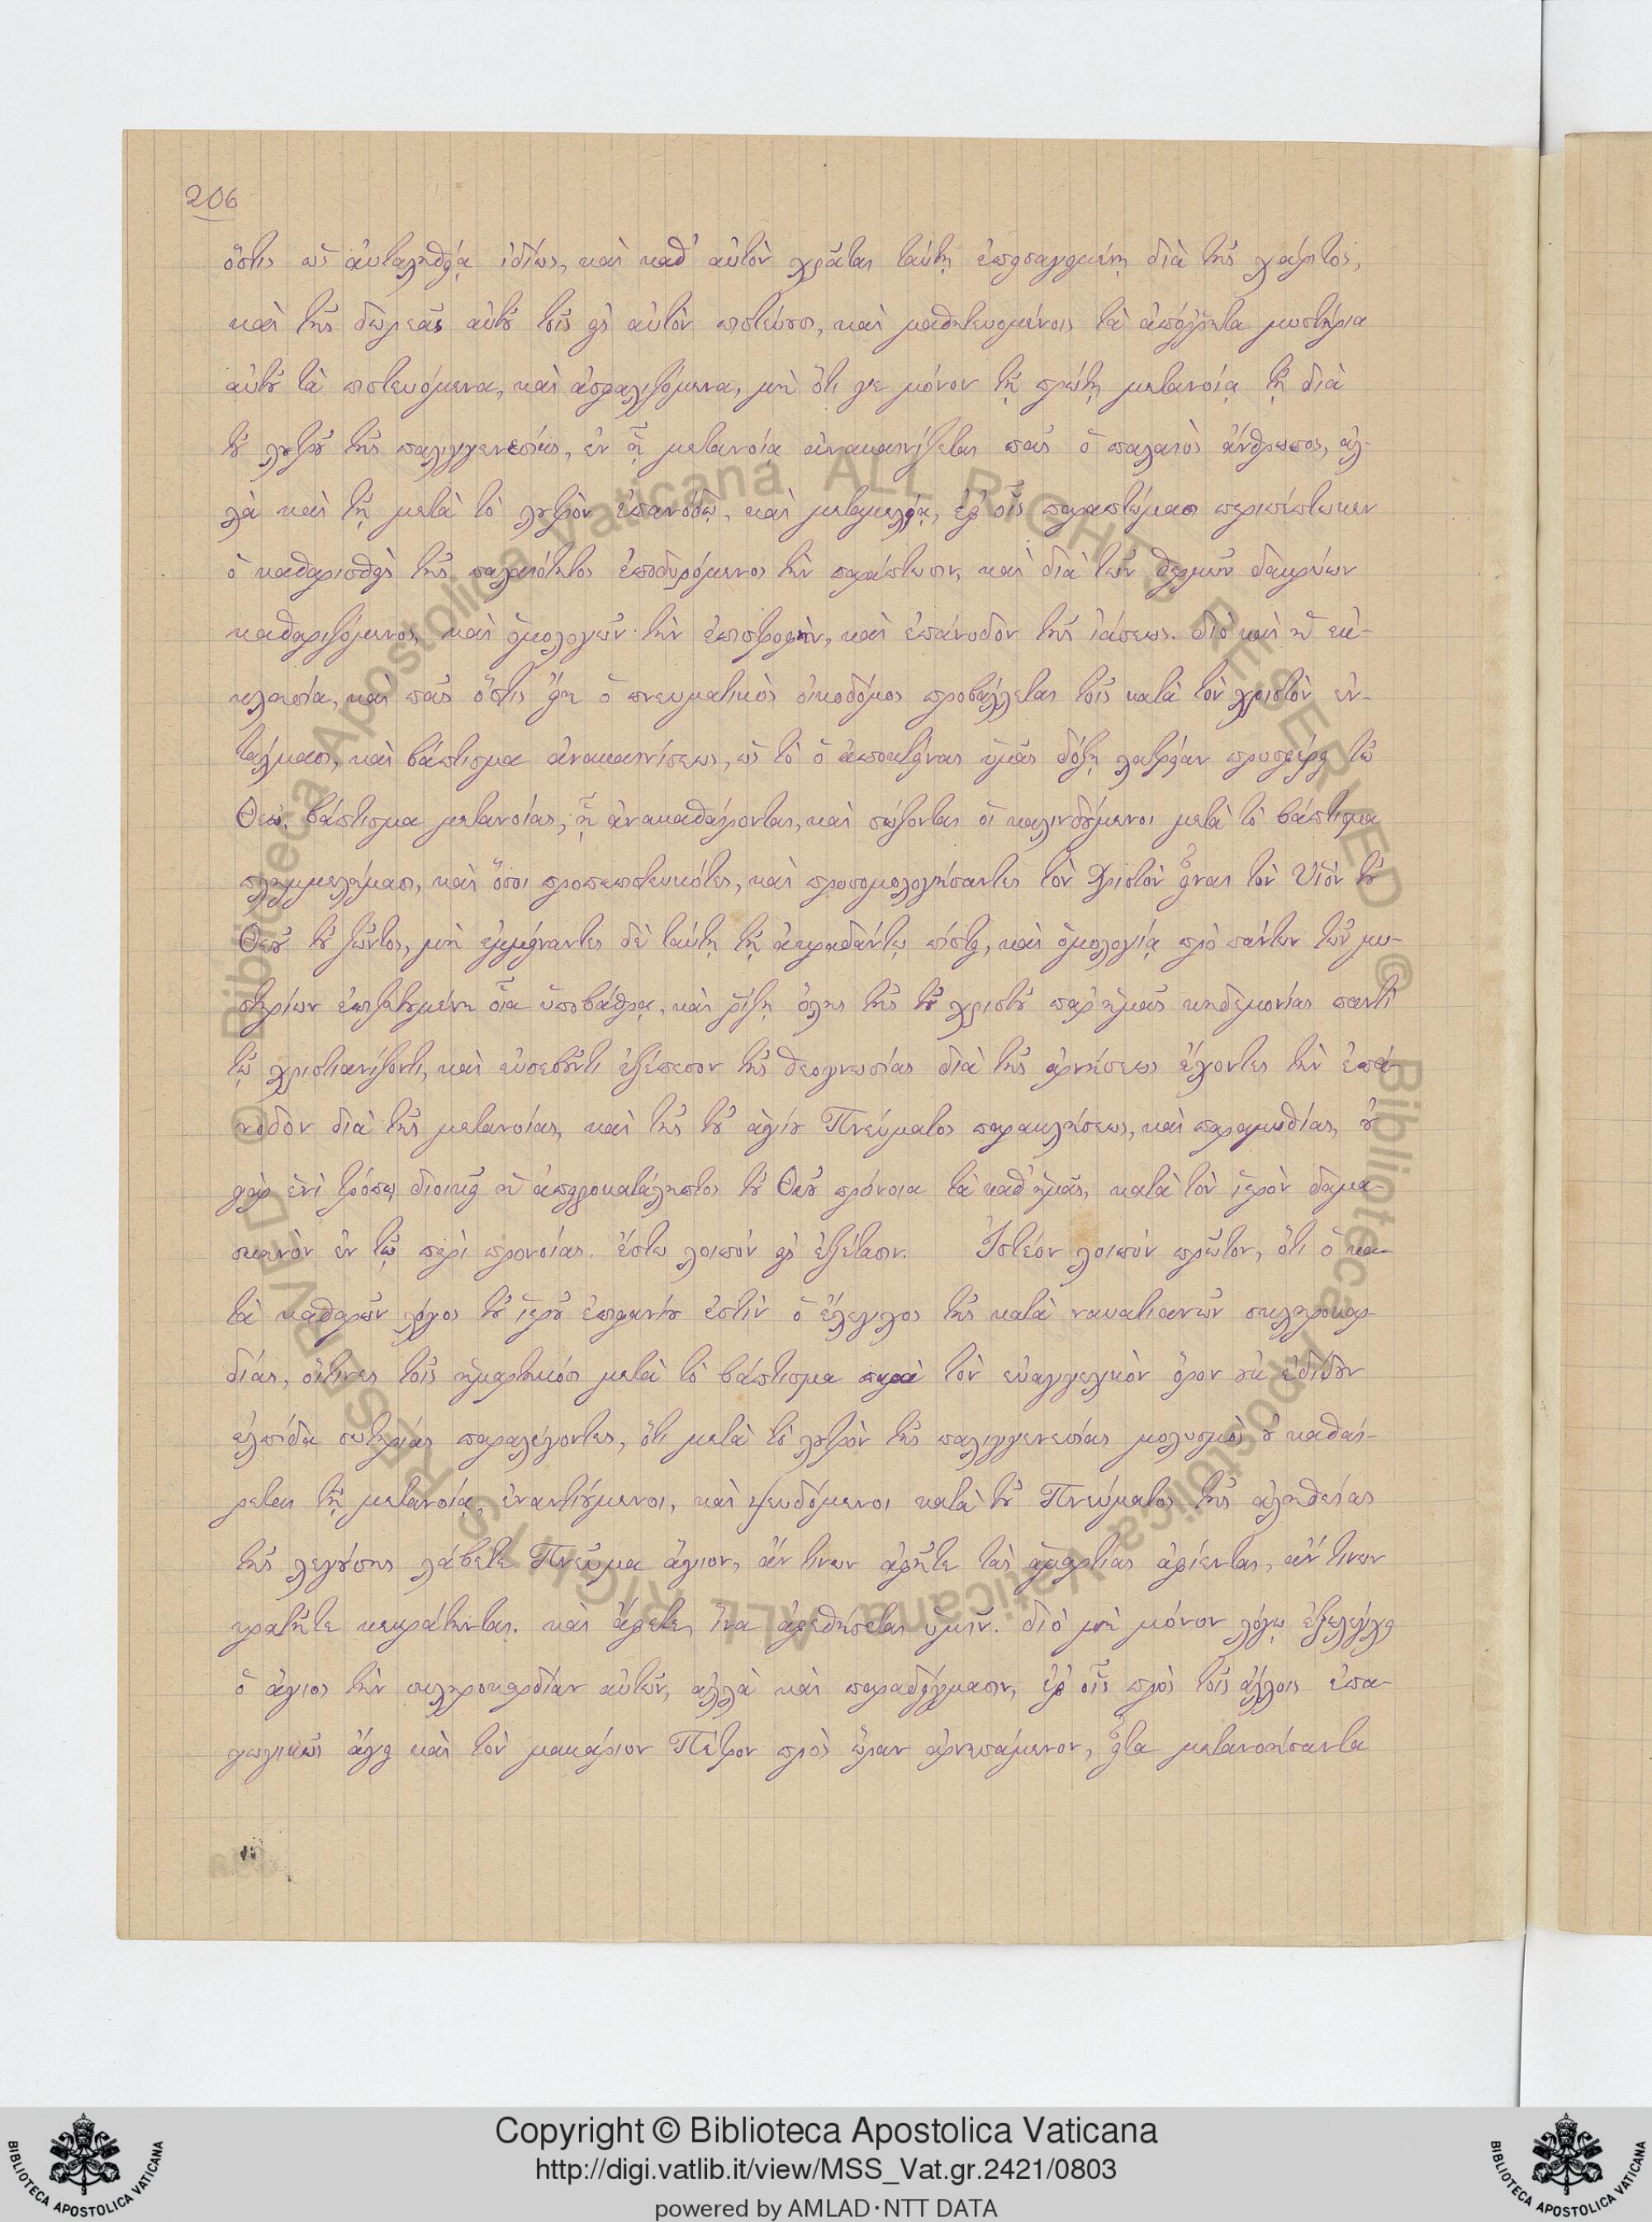 206
ὅστις ὡς αὐταληθείᾳ ἰδίως, καὶ καθ' αὑτὸν χρᾶται ταύτῃ ἐπεισαγομένῃ διὰ τῆς χάριτος,
καὶ τῆς δωρεᾶς αὐτοῦ τοῖς εἰς αὐτὸν πιστεύουσι, καὶ μαθητευομένοις τὰ ἀπόρρητα μυστήρια
αὐτοῦ τὰ πιστευόμενα, καὶ ἀσφαλιζόμενα, μὴ ὅτι γε μόνον τῇ πρώτῃ μετανοίᾳ τῇ διὰ
τοῦ λουτροῦ τῆς παλιγγενεσίας, ἐν ᾗ μετανοίᾳ ἀνακαινίζεται πᾶς ὁ παλαιὸς ἄνθρωπος, ἀλ-
λὰ καὶ τῇ μετὰ τὸ λουτρὸν ἐπανόδῳ, καὶ μεταμελείᾳ, ἐφ' οἷς παραπτώμασι περιπέπτωκεν
ὁ καθαρισθεὶς τῆς παλαιότητος ἐποδυρόμενος τὴν παράπτωσιν, καὶ διὰ τῶν θερμῶν δακρύων
καθαριζόμενος, καὶ ὁμολογῶν τὴν ἐπιστροφὴν, καὶ ἐπάνοδον τῆς ἰάσεως. διὸ καὶ ἡ ἐκ-
κλησία, καὶ πᾶς ὅστις ᾖ ὁ πνευματικὸς οἰκοδόμος προβάλλεται τοῖς κατὰ τὸν χριστὸν ἐν-
τάλμασι, καὶ βάπτισμα ἀνακαινίσεως, ὡς τὸ ὁ ἀποκτείνας ὑμᾶς δόξῃ λατρείαν προσφέρειν τῷ
Θεῷ. βάπτισμα μετανοίας, ᾗ ἀνακαθαίρονται, καὶ σώζονται οἱ καλινδούμενοι μετὰ τὸ βάπτισμα
πλημμελήμασι, καὶ ὅσοι προπεπιστευκότες, καὶ προσομολογήσαντες τὸν Χριστὸν εἶναι τὸν Υἱὸν τοῦ
Θεοῦ τοῦ ζῶντος, μὴ ἐμμείναντες δὲ ταύτῃ τῇ ἀκραδάντῳ πίστει, καὶ ὁμολογίᾳ πρὸ πάντων τῶν μυ-
στηρίων ἐπιζητουμένῃ οἷα ὑποβάθρᾳ, καὶ ῥίζῃ ὅλης τῆς τοῦ χριστοῦ παρ' ἡμᾶς κηδεμονίας παντὶ
τῷ χριστιανίζοντι, καὶ εὐσεβοῦντι ἐξέπεσον τῆς θεογνωσίας διὰ τῆς ἀρνήσεως ἔχοντες τὴν ἐπά-
νοδον διὰ τῆς μετανοίας, καὶ τῆς τοῦ ἁγίου Πνεύματος παρακλήσεως, καὶ παραμυθίας, οὐ
γὰρ ἑνὶ τρόπῳ διοικεῖ ἡ ἀπειροκατάληπτος τοῦ Θεοῦ πρόνοια τὰ καθ' ἡμᾶς, κατὰ τὸν ἱερὸν δαμα-
σκηνὸν ἐν τῷ περὶ προνοίας. ἔστω λοιπόν εἰς ἐξέτασιν. Ἰστέον λοιπὸν πρῶτον, ὅτι ὁ κα-
τὰ καθαρῶν λόγος τοῦ ἱεροῦ ἐπιφανίου ἐστὶν ὁ ἔλεγχος τῆς κατὰ ναυατιανῶν σκληροκαρ-
δίας, οἵτινες τοῖς ἡμαρτηκόσι μετὰ τὸ βάπτισμα παρὰ τὸν εὐαγγελικὸν ὅρον οὐκ ἐδίδουν
ἐλπίδα σωτηρίας παραλέγοντες, ὅτι μετὰ τὸ λουτρὸν τῆς παλιγγενεσίας μολυσμὸς οὐ καθαί-
ρεται τῇ μετανοίᾳ, ἐναντιούμενοι, καὶ ψευδόμενοι κατὰ τοῦ Πνεύματος τῆς ἀληθείας
τῆς λεγούσης λάβετε Πνεῦμα ἅγιον, ἄν τινων ἀφῆτε τὰς ἁμαρτίας ἀφίενται, ἄν τινων
κρατῆτε κεκράτηνται. καὶ ἄφετε, ἵνα ἀφεθήσεται ὑμῖν. διὸ μὴ μόνον λόγῳ ἐξελέγχει
ὁ ἅγιος τὴν σκληροκαρδίαν αὐτῶν, ἀλλὰ καὶ παραδείγμασιν, ἐφ' οἷς πρὸς τοῖς ἄλλοις ἐπα-
γωγικῶς ἄγει καὶ τὸν μακάριον Πέτρον πρὸς ὥραν ἀρνησάμενον, εἶτα μετανοήσαντα
Copyright © Biblioteca Apostolica Vaticana
http://digi.vatlib.it/view/MSS_Vat.gr.2421/0803
powered by AMLAD·NTT DATA